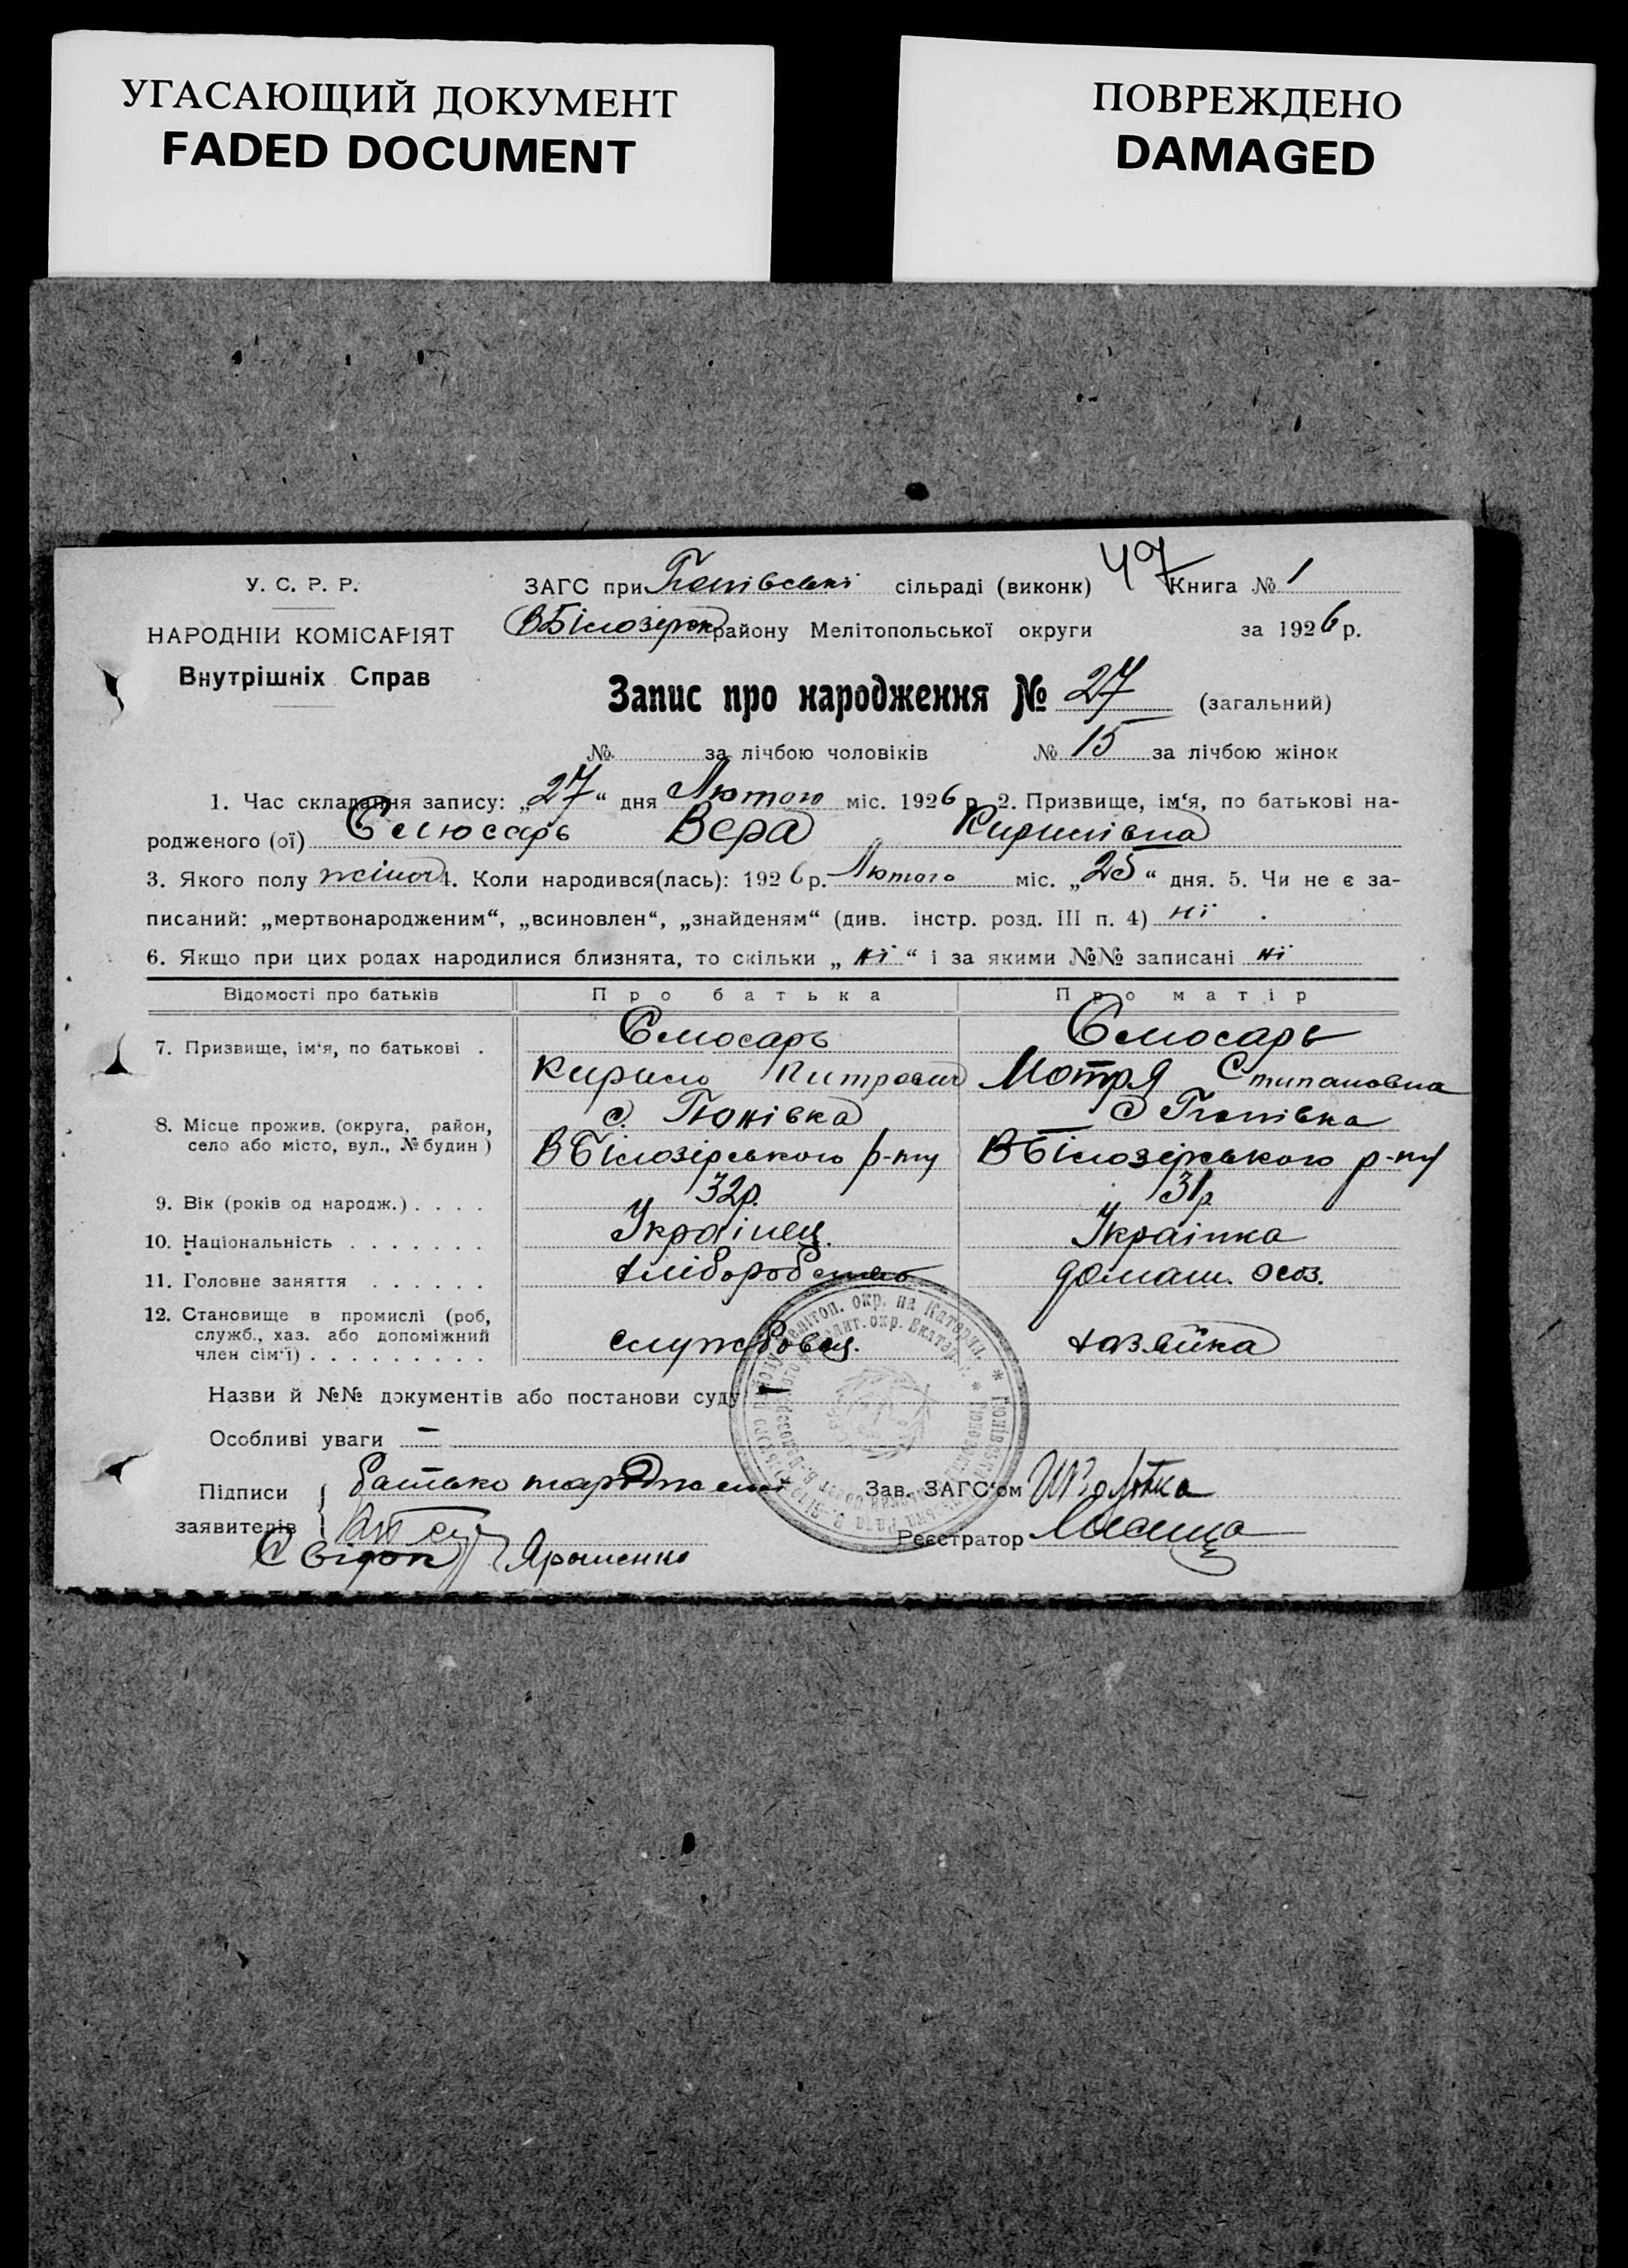 УГАСАЮЩИЙ ДОКУМЕНТ
FADED DOCUMENT
ПОВРЕЖДЕНО
DAMAGED
У. С. Р. Р.
НАРОДНІЙ КОМІСАРІЯТ
Внутрішніх Справ
ЗАГС при сільраді (виконк) 47 Книга № 1
ВБілозірск району Мелітопольської округи за 1926 р.
Запис про народження № 27 (загальний)
№ за лічбою чоловіків № 15 за лічбою жінок
1. Час складання запису: „27“ дня Лютого міс. 1926 р. 2. Призвище, ім‘я, по батькові на-
родженого (ої) Слюсарь Вера Кирилівна
3. Якого полу жіноч 4. Коли народився(лась): 1926 р. Лютого міс. „25“ дня. 5. Чи не є за-
писаний: „мертвонародженим“, „всиновлен“, „знайденям“ (див. інстр. розд. III п. 4) ні
6. Якщо при цих родах народилися близнята, то скільки „ні“ і за якими №№ записані ні
Відомості про батьків Про батька Про матір
7. Призвище, ім‘я, по батькові . Слюсарь Слюсарь
Кирило Митрович Мотря Стипановна
8. Місце прожив. (округа, район, село або місто, вул., № будин) с. Гюнівка с Гюнівка
ВБілозірського р-ну ВБілозірського р-ну
9. Вік (років од народж.) . . . . 32р. 31р
10. Національність . . . . . . . Українец. Українка
11. Головне заняття . . . . . . Хліборобство домаш. осоз.
12. Становище в промислі (роб, служб., хаз. або допоміжний член сім‘ї) . . . . . . . . . службовец. хазяйка
Назви й №№ документів або постанови суду
Особливі уваги —
Підписи заявителів Батько
Свідок Ярошенко
Зав. ЗАГС‘ом
Реєстратор